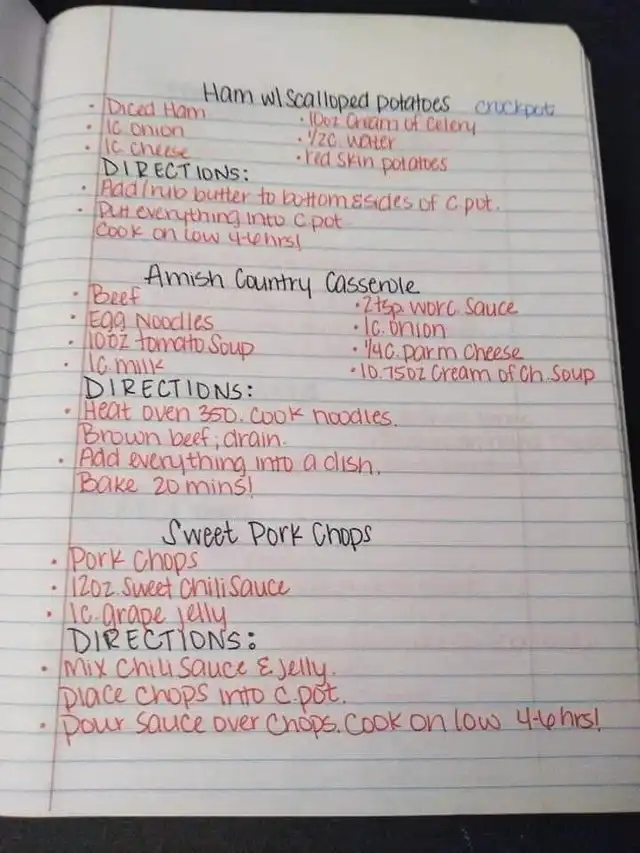 Ham w/ Scalloped potatoes crockpot
• Diced Ham
• 1c onion
• 1c cheese
• 10oz Cream of Celery
• 1/2c. water
• red skin potatoes
DIRECTIONS:
• Add/rub butter to bottom & sides of c.pot.
• Put everything into c.pot
Cook on low 4-6hrs!
Amish Country Casserole
• Beef
• Egg Noodles
• 10oz tomato Soup
• 1c. milk
• 2tsp worc. Sauce
• 1c. onion
• 1/4c. parm cheese
• 10.75oz Cream of Ch. Soup
DIRECTIONS:
• Heat oven 350. Cook noodles.
Brown beef; drain.
• Add everything into a dish.
Bake 20 mins!
Sweet Pork Chops
• Pork Chops
• 12oz. Sweet Chili Sauce
• 1c. grape jelly
DIRECTIONS:
• Mix Chili Sauce & jelly.
place chops into c.pot.
• pour sauce over chops. Cook on low 4-6hrs!